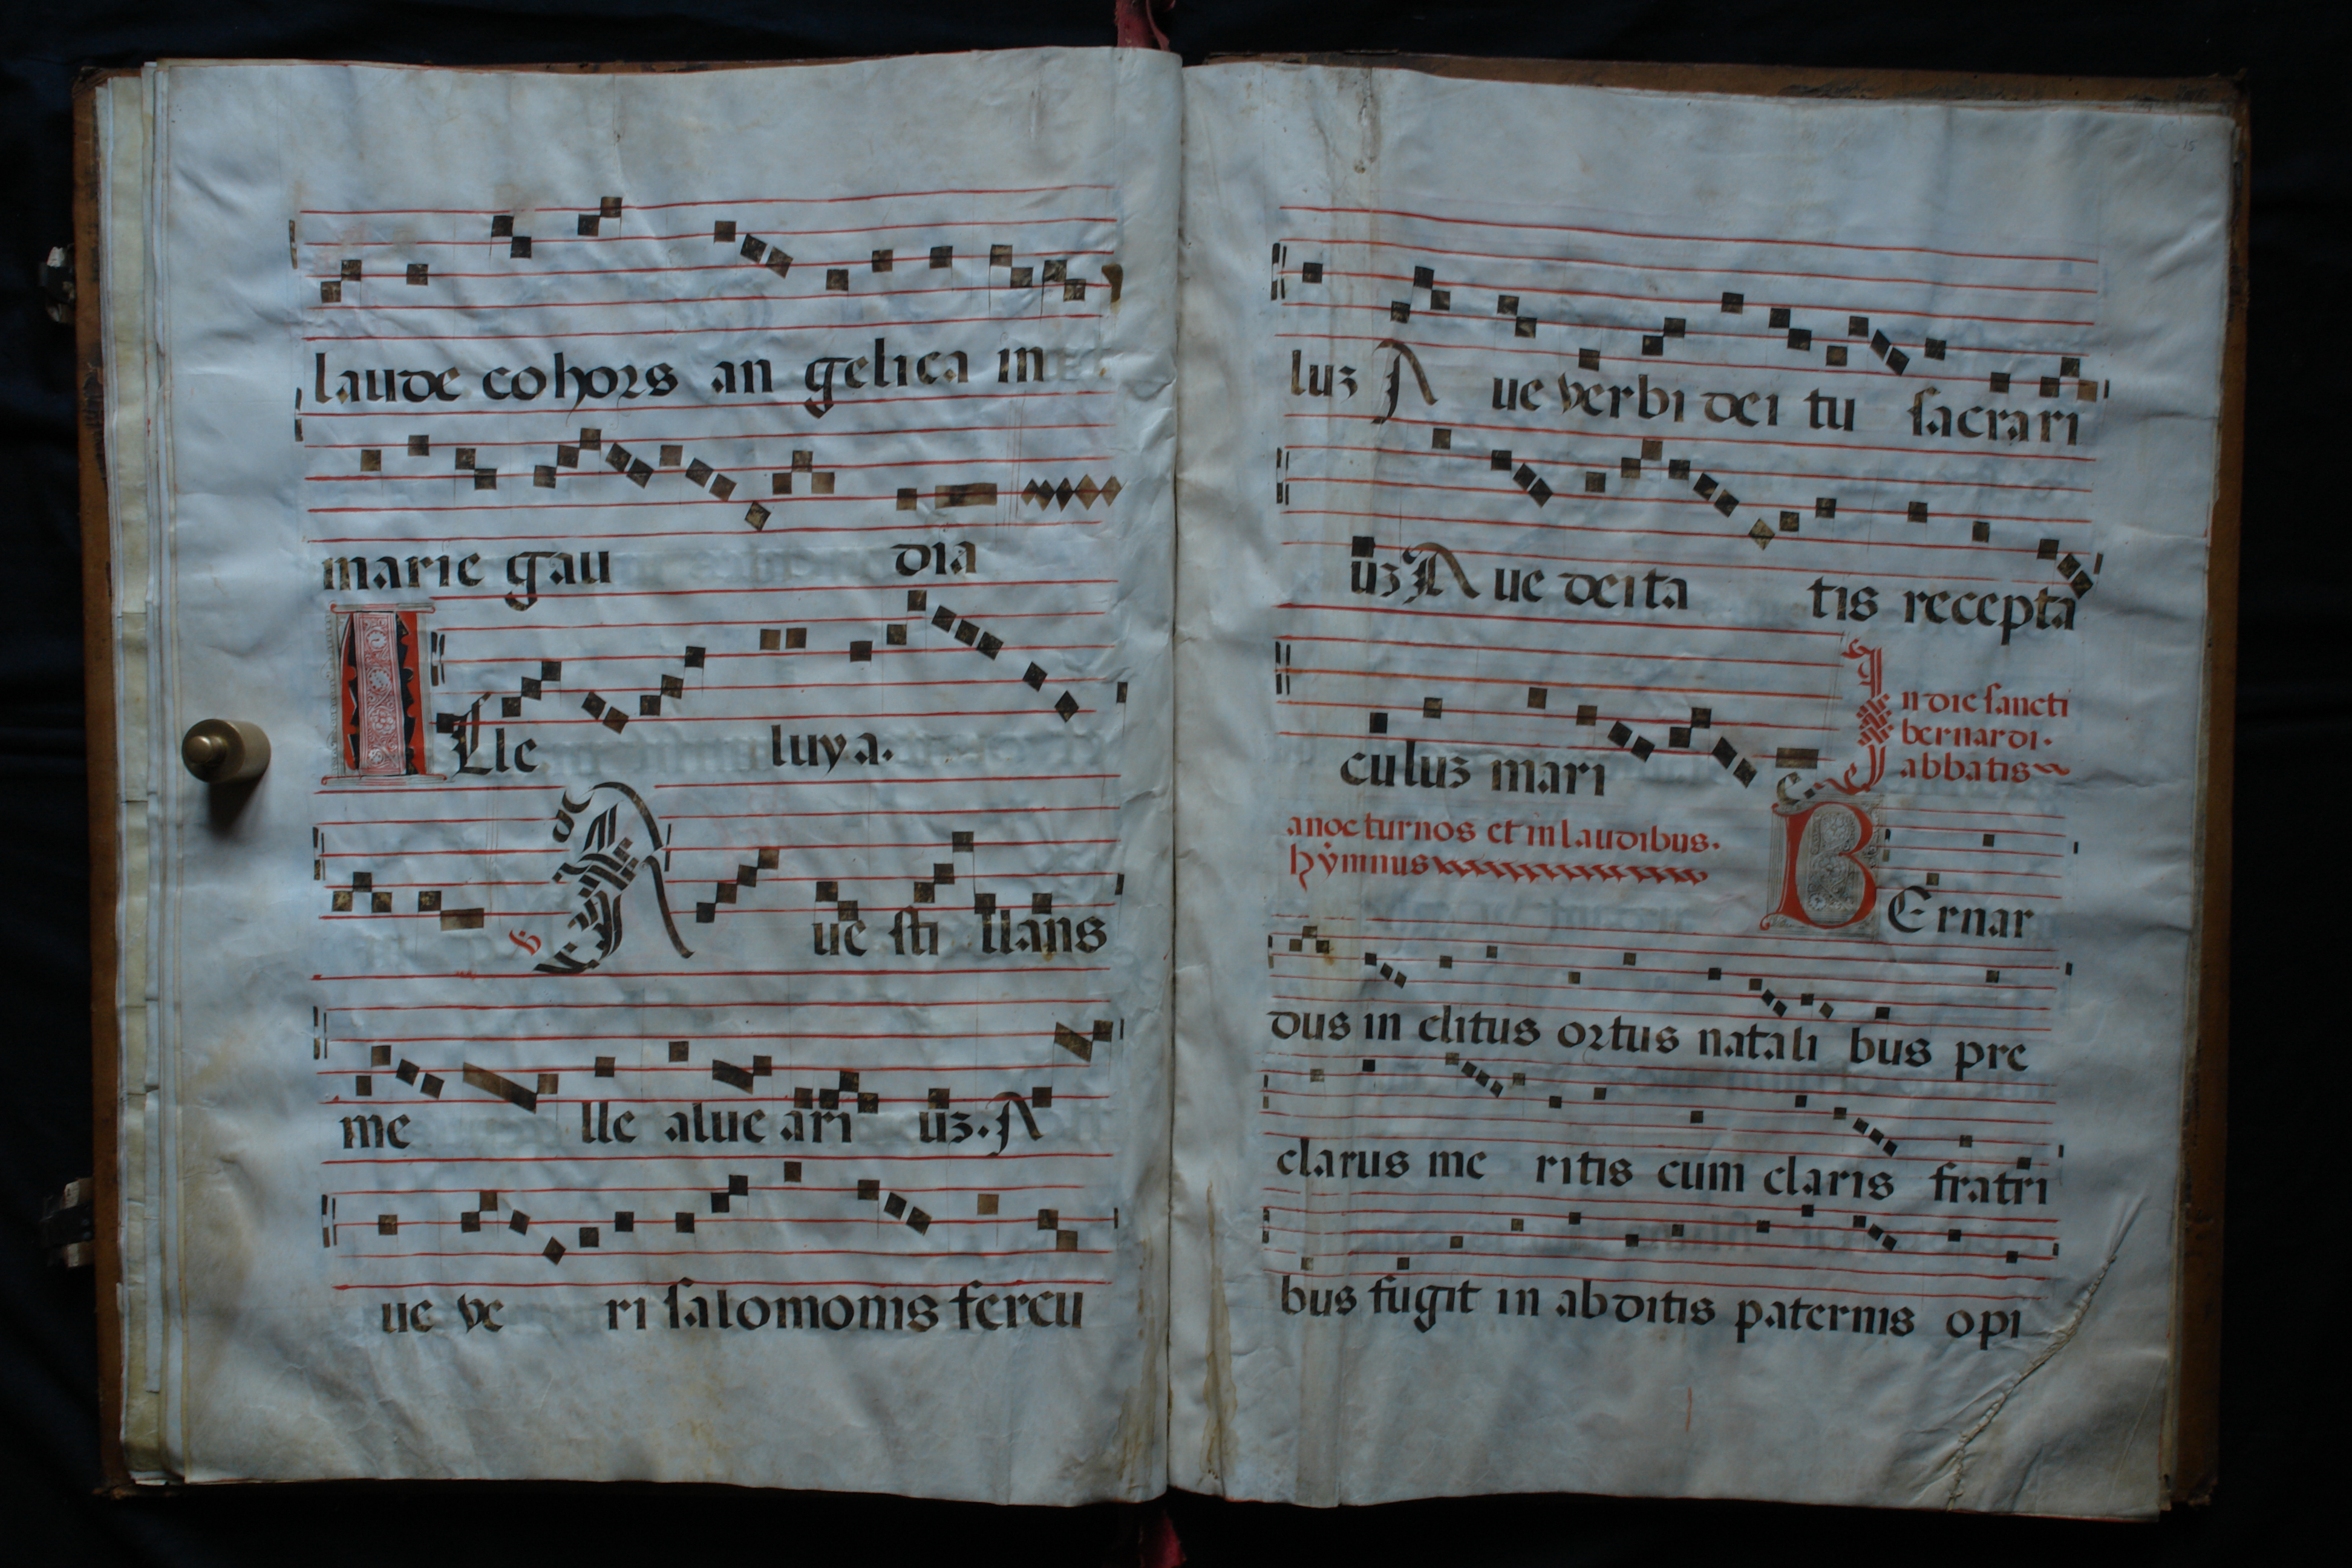 laude cohors an gelica in
marie gau dia
Alle luya.
Aue sti llans
me lle alue ari uz. A
ue ve ri salomonis fercu
15
luz Aue verbi dei tu sacrari
uz Aue deita tis recepta
culuz mari e.
In die sancti
bernardi.
abbatis
anocturnos et in laudibus.
hymnus
BErnar
dus in clitus ortus natali bus pre
clarus me ritis cum claris fratri
bus fugit in abditis paternis opi